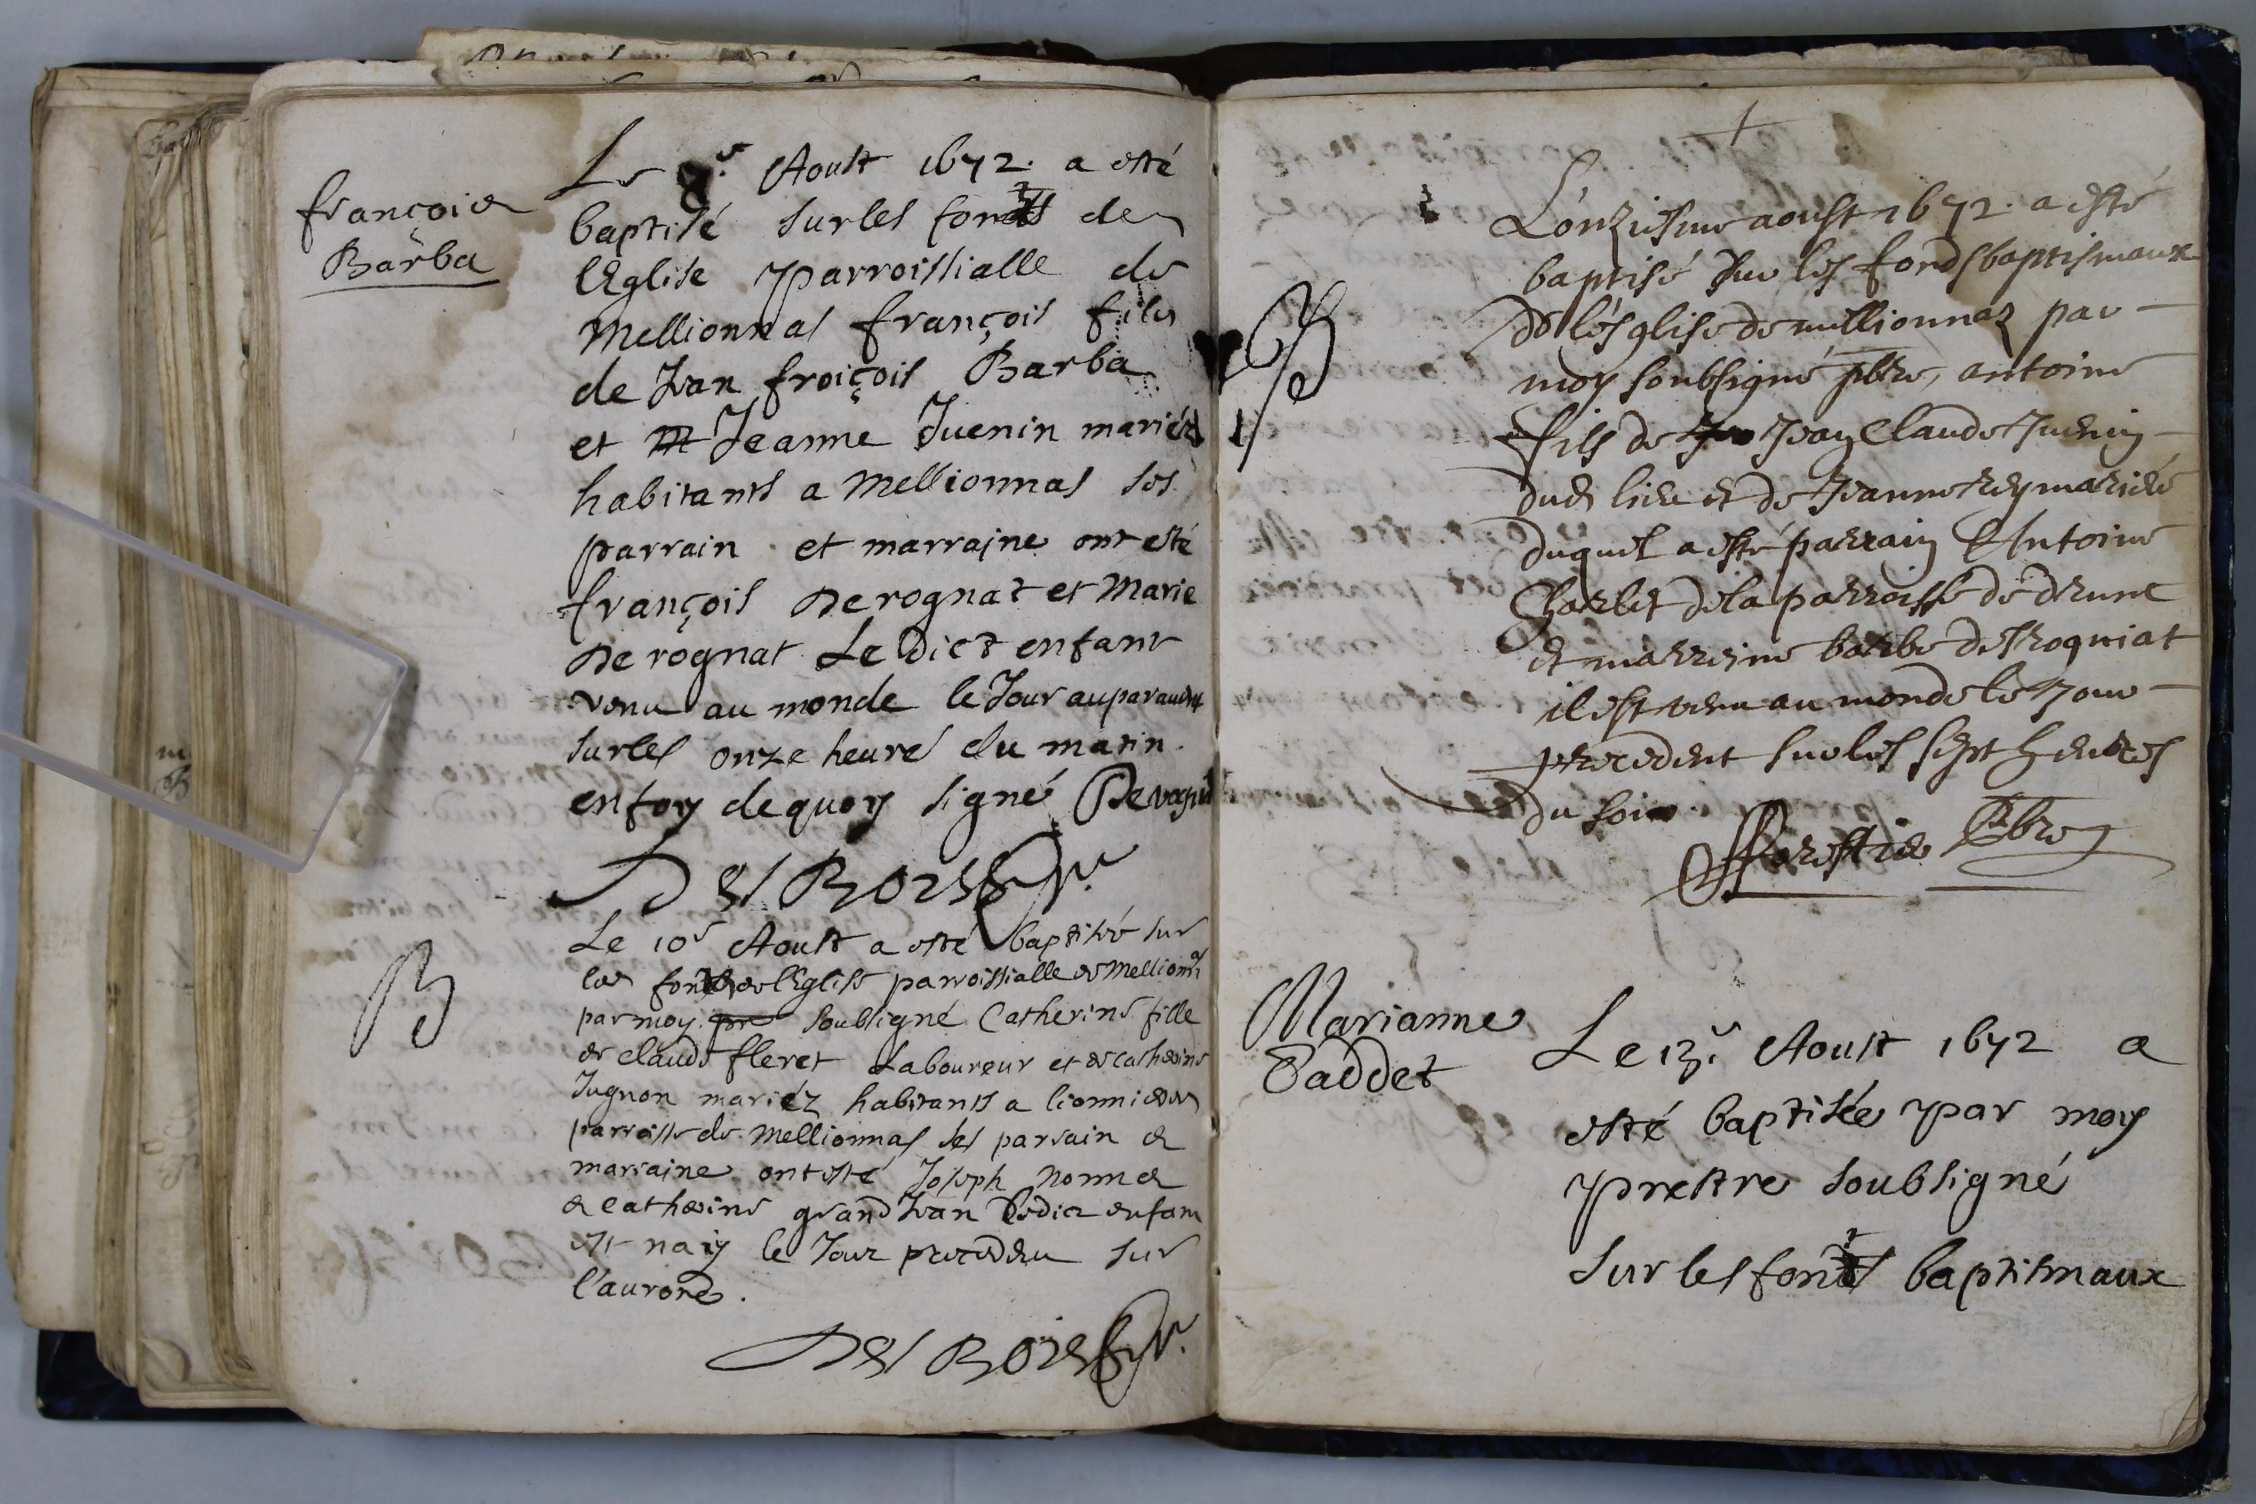 françois
Barba
Le 8.e Aoust 1672. a esté
baptisé sur les fonts de
lEglise parroissialle de
Mellionnas françois fils
de Jean froiçois Barba
et Jeanne Juenin mariés
habitants a Mellionnas ses
parrain et marraine ont esté
françois De rognat et Marie
De rognat Le dict enfant
venu au monde le Jour auparavant
sur les onze heures du matin
en foy de quoy signé Derognat
Des Bois
B
Le 10e Aoust a esté baptisée sur
les fonts de lEglise parroissialle de Mellionas
par moy soubsigné Catherine fille
de claude fleret Laboureur et de catherine
Jugnon mariéz habitants a lionnieres
parroisse de Mellionnas ses parrain et
marraine ont esté Joseph
et Catherine grand Jean Ledict enfant
est nay le Jour precedeu sur
l'aurore.
Des Bois
B
L'onziesme aoust 1672. a esté
baptisé sur les fonds baptismaux
de l'ésglise de millionnaz par
moy soubsigné pbre, antoine
fils de Jean Claude Juenin
dud lieu et de Jeanne Rey mariés
duquel a esté parrain Antoine
Charlet de la parroisse de drunt
et marreine barbe de Rogniat
il est venu au monde le Jour
precedent sur les sept heures
du soir.
fforestier Pbre
Marianne
Paddet
Le 13.e Aoust 1672 a
esté baptisée par moy
prestre soubsigné
sur les fonts baptismaux